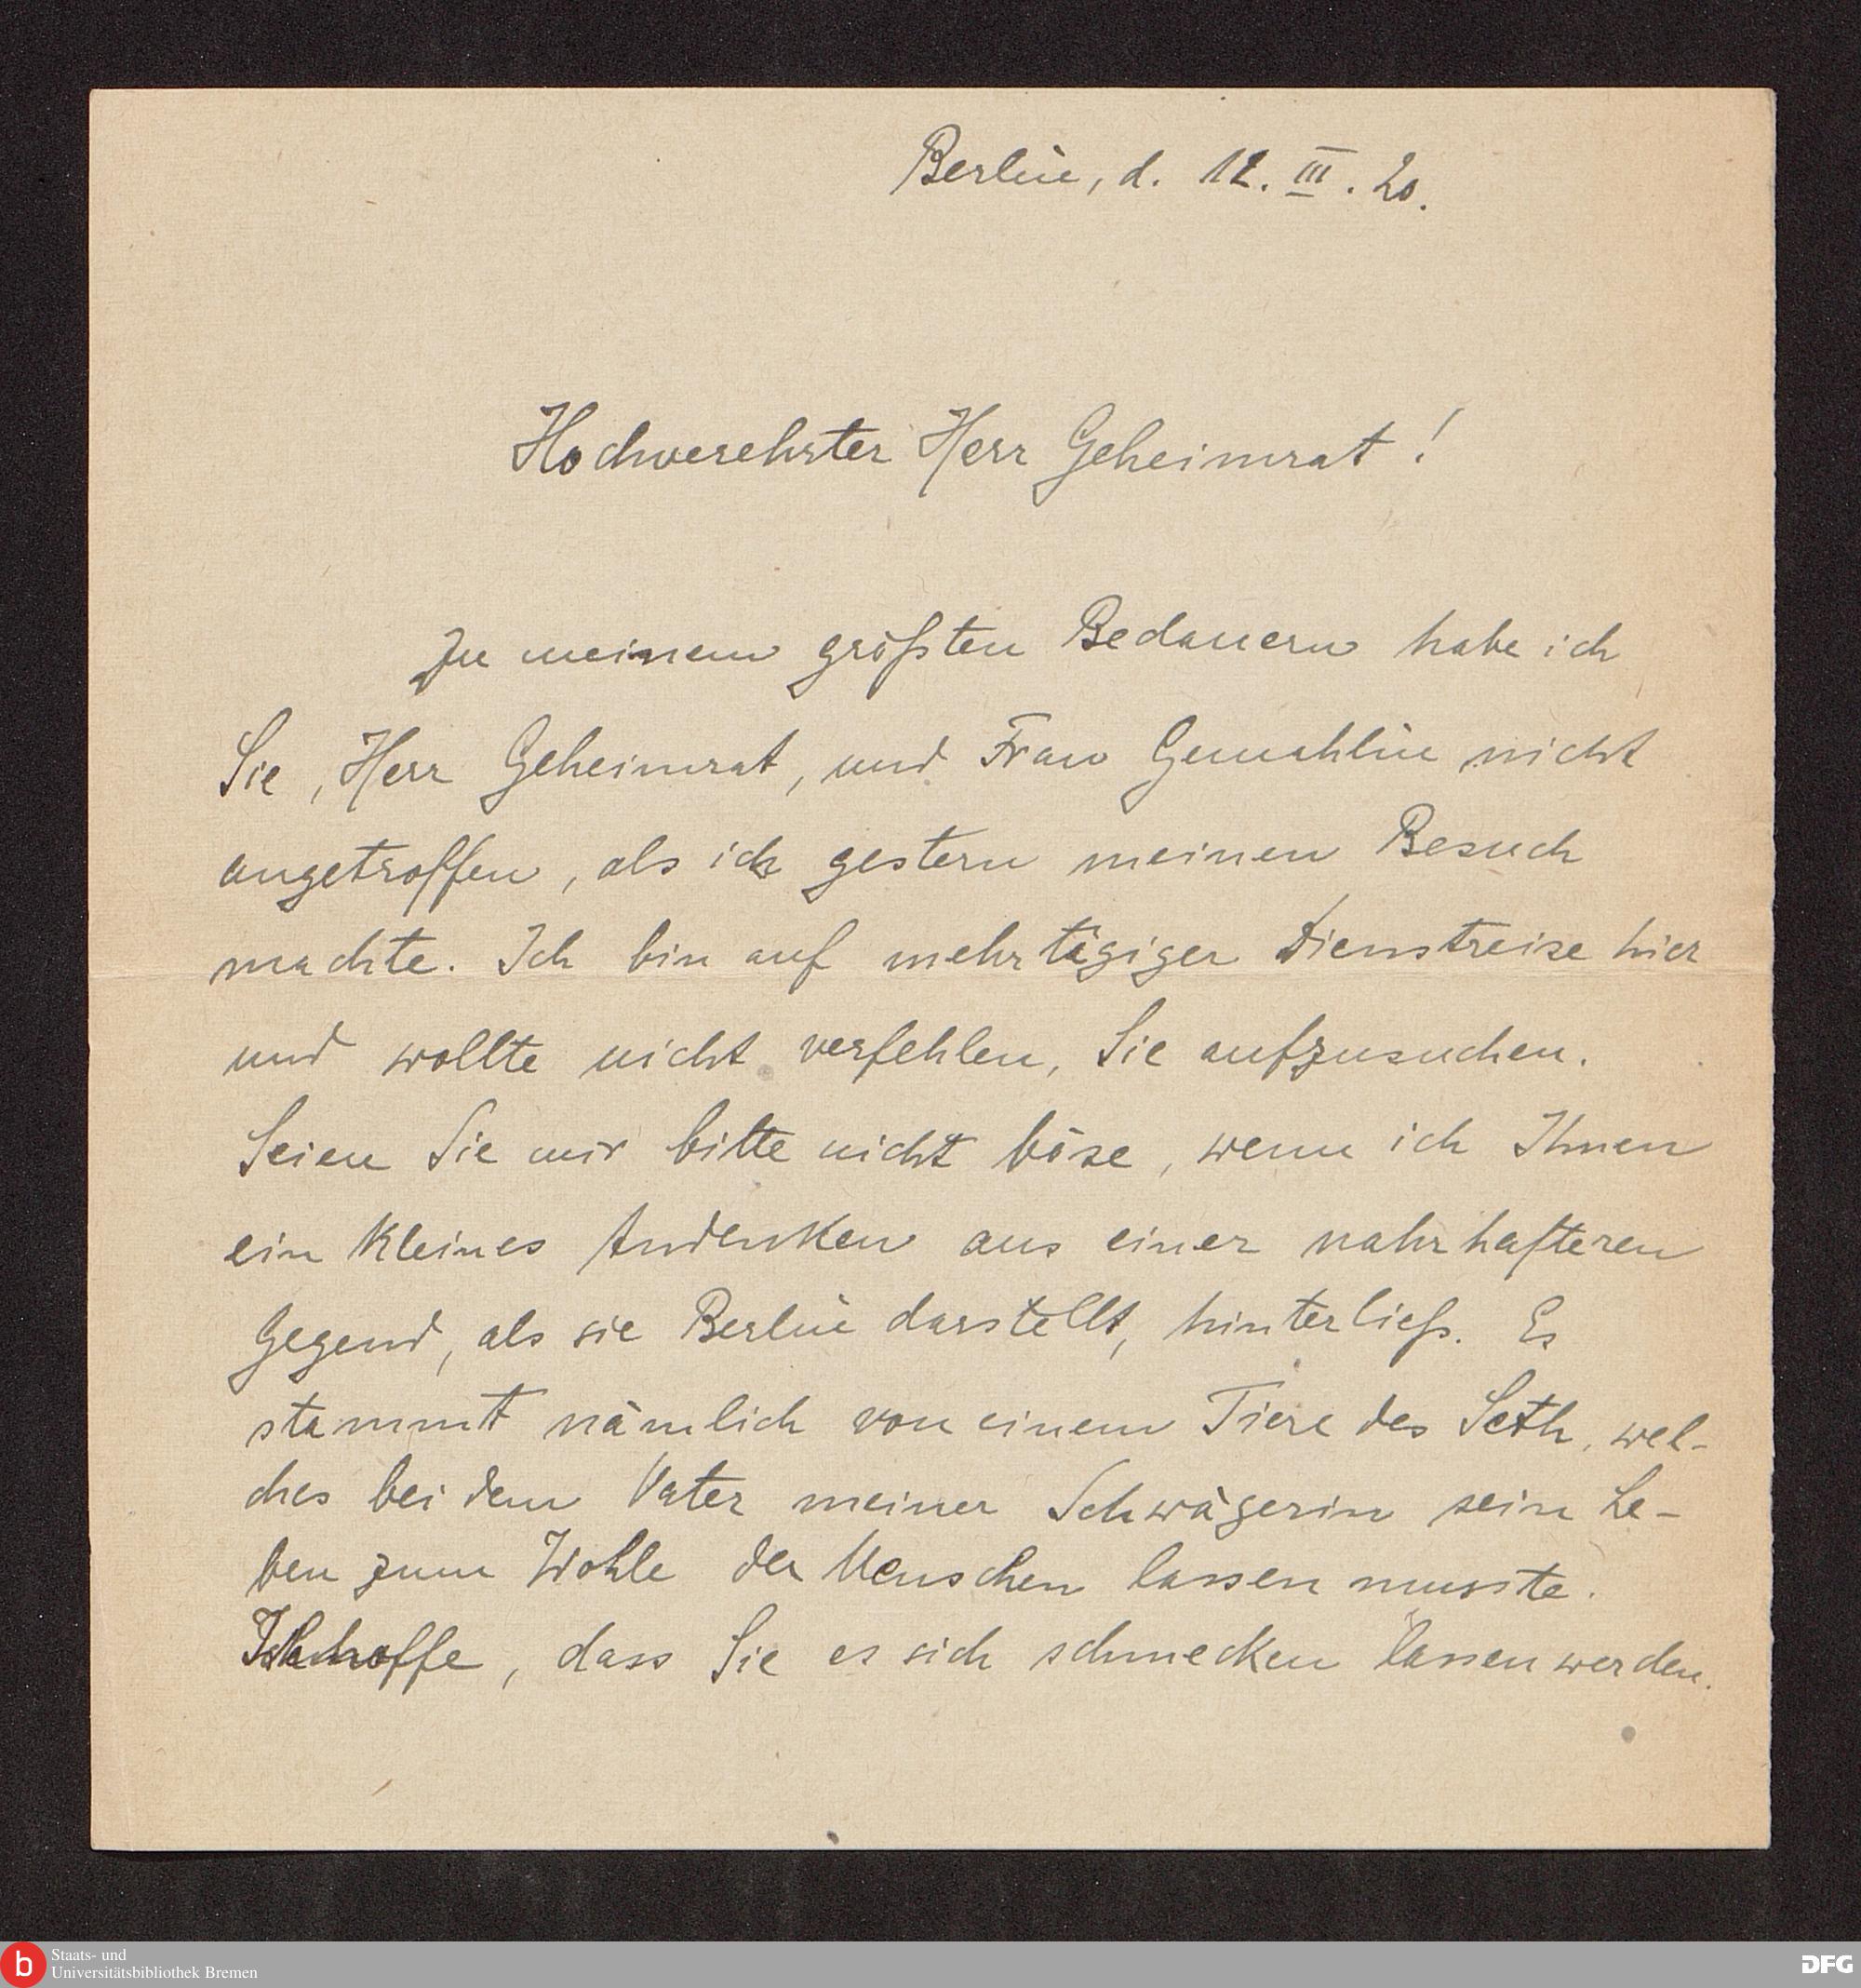 Berlin, d. 12. III. 20.
Hochverehrter Herr Geheimrat!
Zu meinem größten Bedauern habe ich
Sie, Herr Geheimrat, und Frau Gemahlin nicht
angetroffen, als ich gestern meinen Besuch
machte. Ich bin auf mehrtägiger Dienstreise hier
und wollte nicht verfehlen, Sie aufzusuchen.
Seien Sie mir bitte nicht böse, wenn ich Ihnen
ein kleines Andenken aus einer nahrhafteren
Gegend, als sie Berlin darstellt, hinterließ. Es
stammt nämlich von einem Tiere des Seth, wel-
ches bei dem Vater meiner Schwägerin sein Le-
ben zum Wohle der Menschen lassen musste.
Ich hoffe, dass Sie es sich schmecken lassen werden.
b
Staats- und
Universitätsbibliothek Bremen
DFG